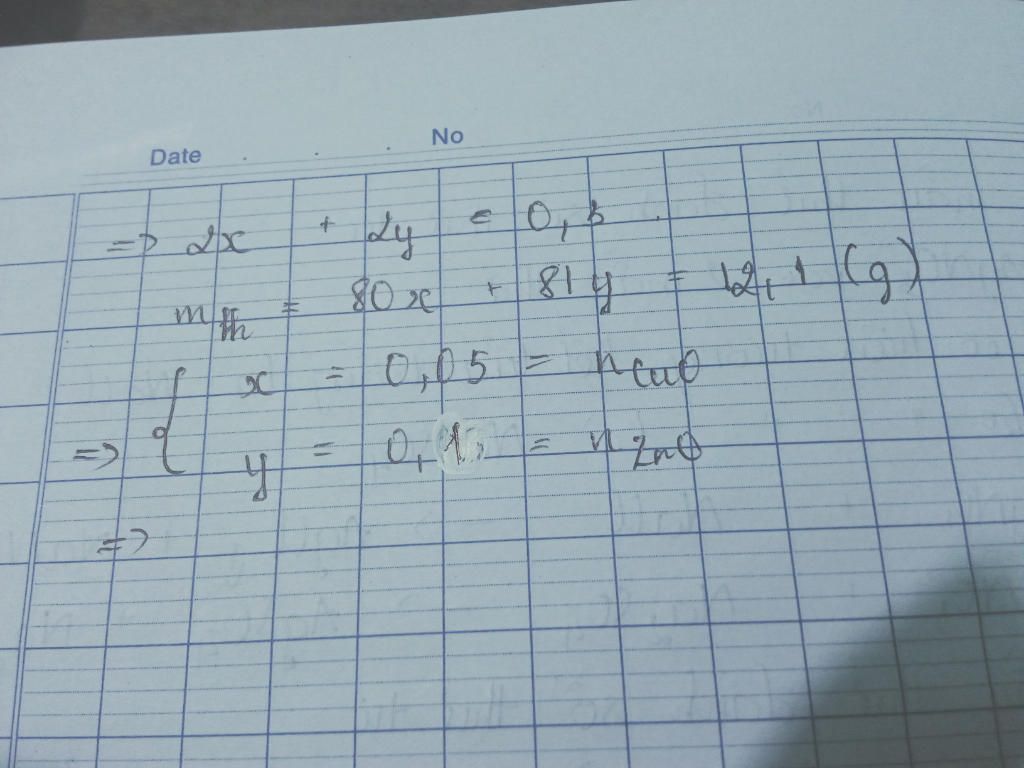 Date . . . No
=> 2x + 2y = 0,3
m hh = 80x + 81y = 12,1 (g)
{ x = 0,05 = n CuO
=> y = 0,1 = n ZnO
=>